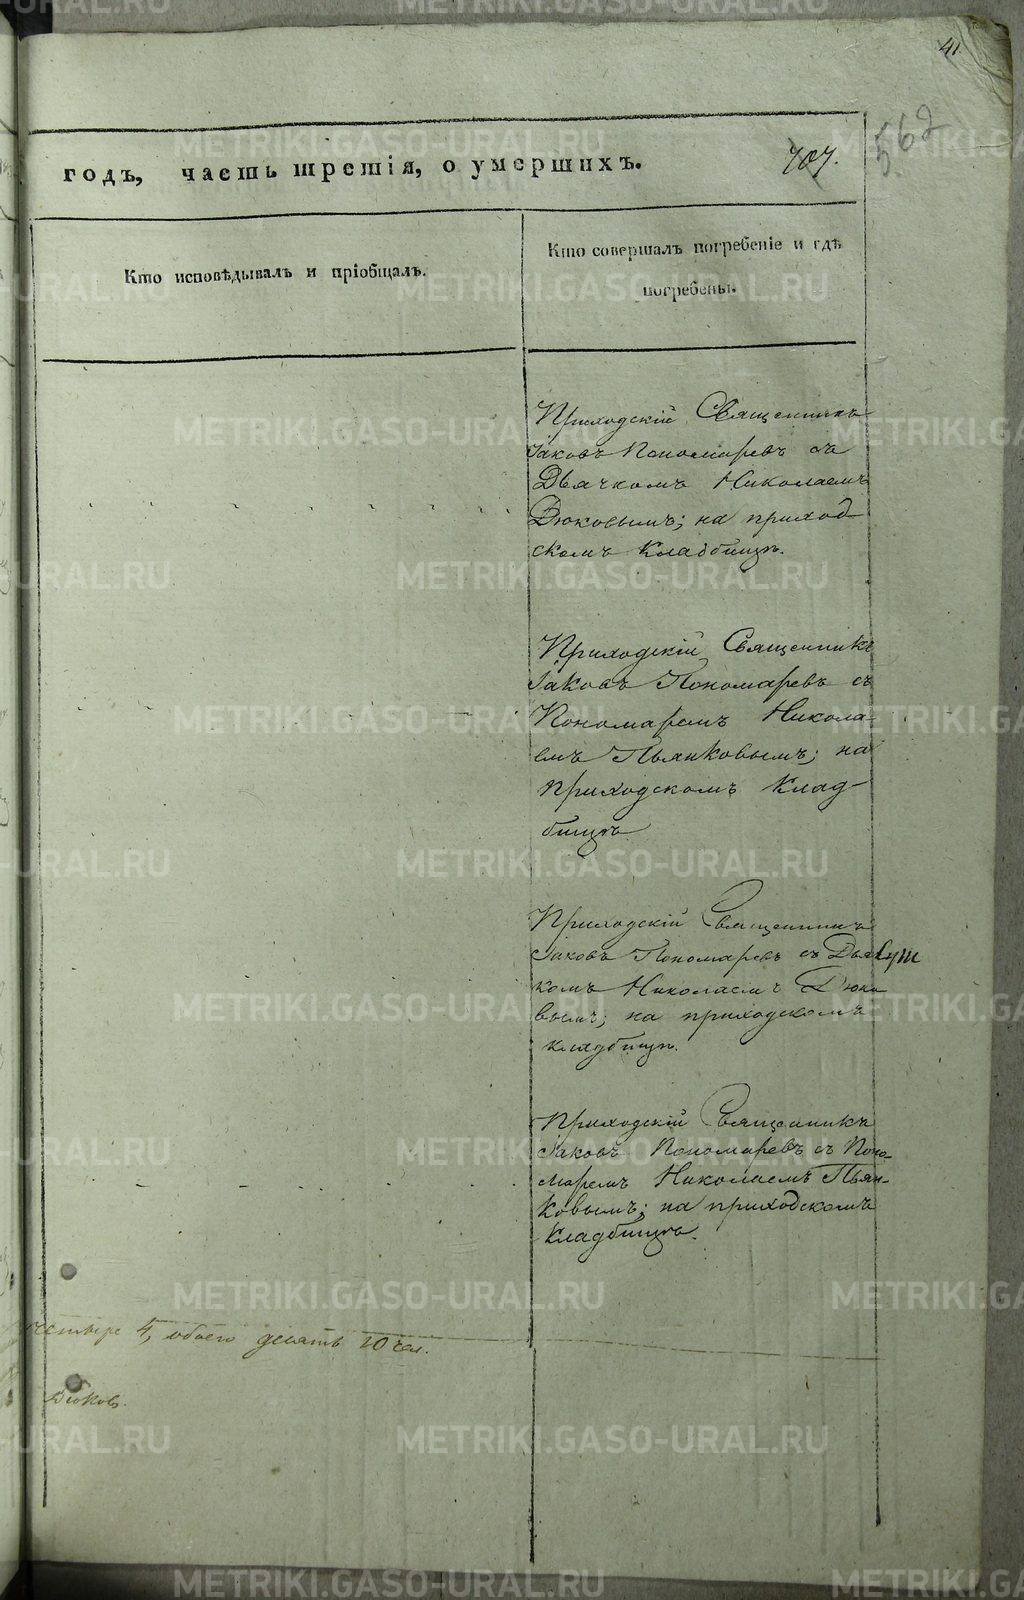 41
562
годъ, часть третія, о умершихъ.
707.
Кто исповѣдывалъ и пріобщалъ.
Кто совершалъ погребеніе и гдѣ
погребены.
Приходскій Священникъ
Іаковъ Пономаревъ съ
Дьячкомъ Николаемъ
Дюковымъ; на приход-
скомъ кладбищѣ.
Приходскій Священникъ
Іаковъ Пономаревъ съ
Пономаремъ Никола-
емъ Пьянковымъ; на
приходскомъ Клад-
бищѣ
Приходскій Священникъ
Іаковъ Пономаревъ съ
комъ Николаемъ Дюко
вымъ; на приходскомъ
кладбищѣ.
Приходскій Священникъ
Іаковъ Пономаревъ съ Поно-
маремъ Николаемъ Пьян-
ковымъ; на приходскомъ
Кладбищѣ.
четыре 4, обоего десять 10 чел.
Дюковъ.
METRIKI.GASO-URAL.RU